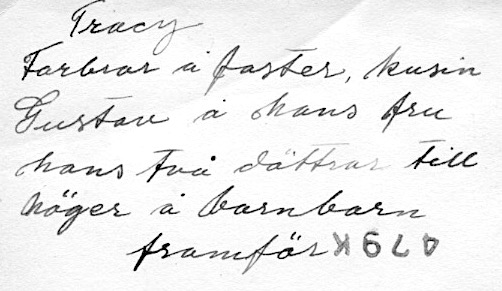 Tracy
Farbror å faster, kusin
Gustav å hans fru
hans två döttrar till
höger å barnbarn
framför K679